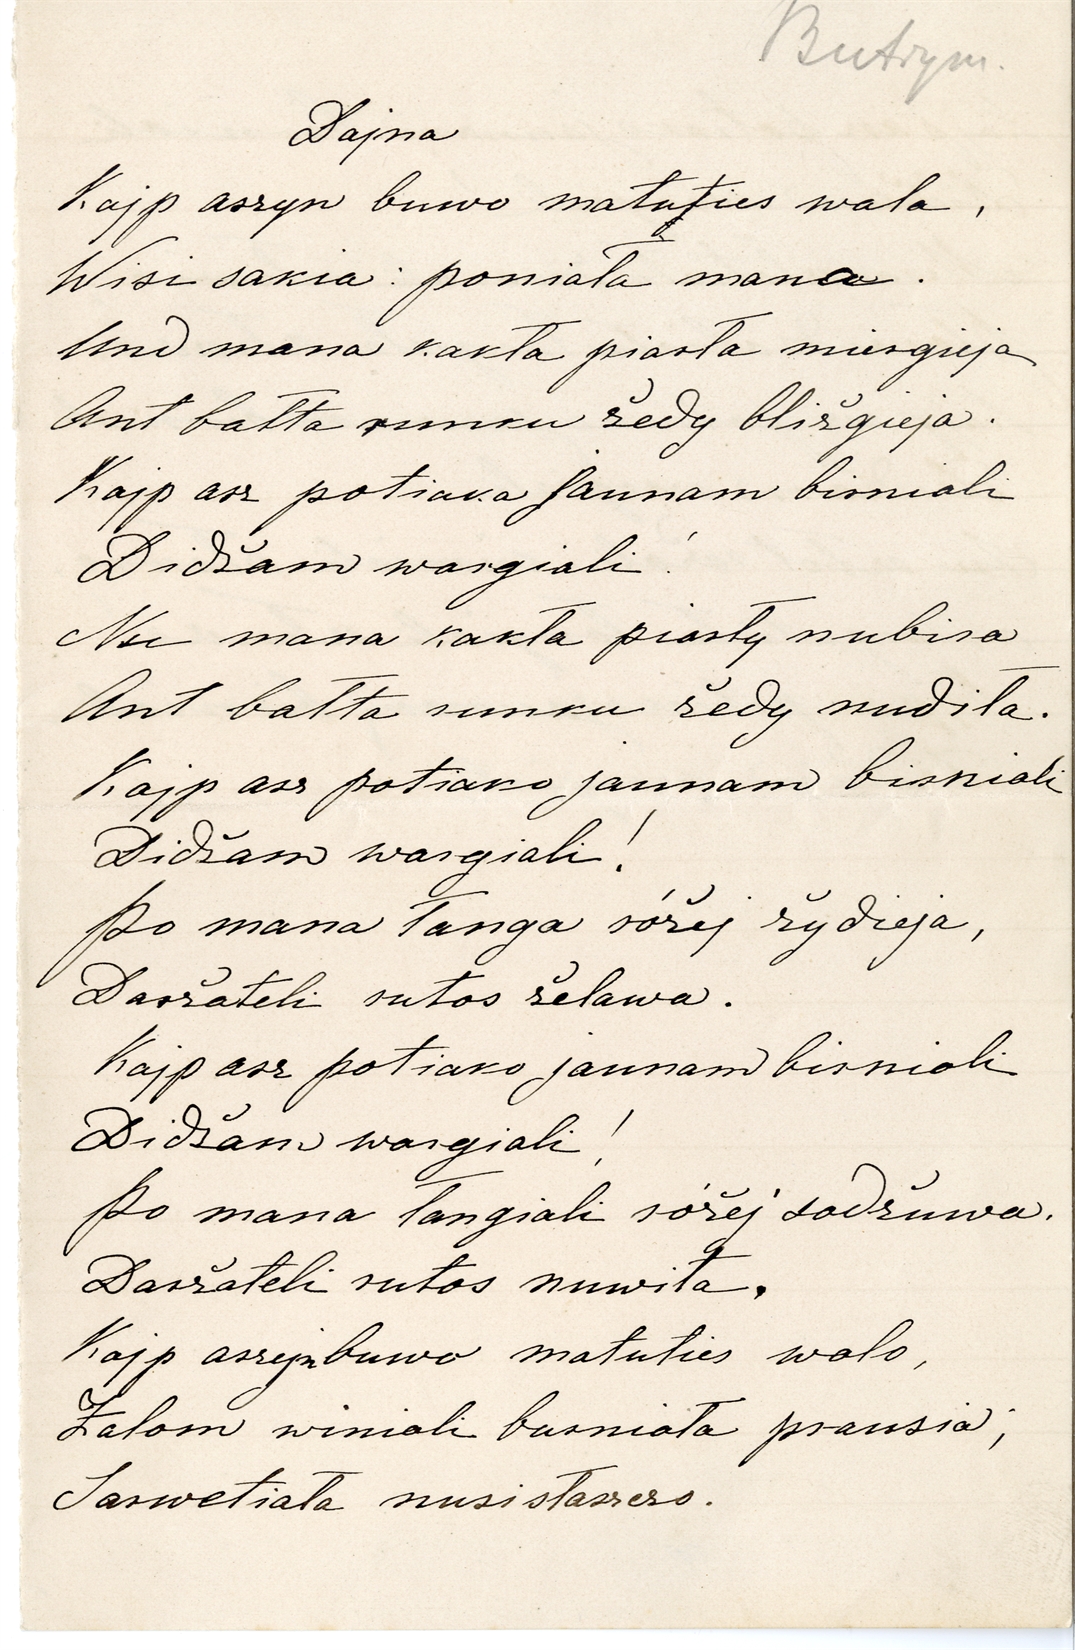 Butrym.
Dajna
Kajp aszyn buwo matuties wala,
Wisi sakia: poniała mana.
Und mana kakła piarła miergieja
Ant bałta runku žedy bližgieja.
Kajp asz potiaka jaunam birniali
Didžam wargiali!
Nu mana kakła piarły nubira
Ant bałta runku žedy nudiła.
Kajp asz potiako jaunam birniali
Didžam wargiali!
Po mana łanga róžej žydieja,
Daržateli rutos želawa.
Kajp asz potiako jaunam birniali
Didžam wargiali!
Po mana łangiali róžej sodžuwa.
Daržateli rutos nuwita.
Kajp aszejn buwo matuties walo,
Žalom winiali burniała prausia;
Sarwetiała nusisłaszezo.